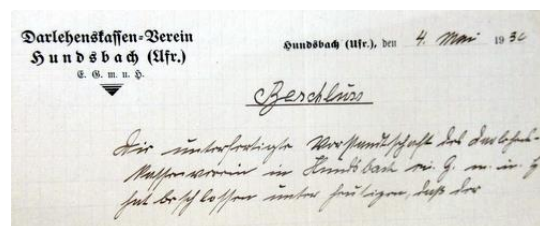 Darlehenskassen-Verein
Hundsbach (Ufr.)
E. G. m. u. H.
Hundsbach (Ufr.), den 4. Mai 1930
Beschluss
Die unterfertigte Vorstandtschaft des Darlehens-
kassenverein in Hundsbach ei. G. m. u. H
hat beschlossen unter heutigen, daß der